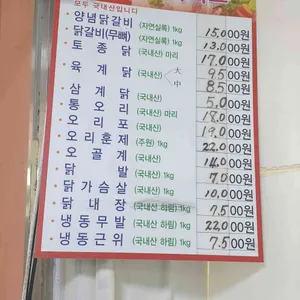 모두 국내산입니다
양념닭갈비 (자연실록) 1kg 15,000원
닭갈비(무뼈) (자연실록) 1kg 13,000원
토종닭 (국내산) 마리 17,000원
육계닭 (국내산) 大 9,500원
中 8,500원
삼계닭 (국내산) 5,000원
통오리 (국내산) 마리 18,000원
오리포 (국내산) 19,000원
오리훈제 (주원) 1kg 22,000원
오골계 (국내산) 14,000원
닭발 (국내산) 1kg 7,000원
닭가슴살 (국내산) 1kg 10,000원
닭내장 (국내산 하림) 1kg 7,500원
냉동무발 (국내산 하림) 1kg 22,000원
냉동근위 (국내산 하림) 1kg 7,500원